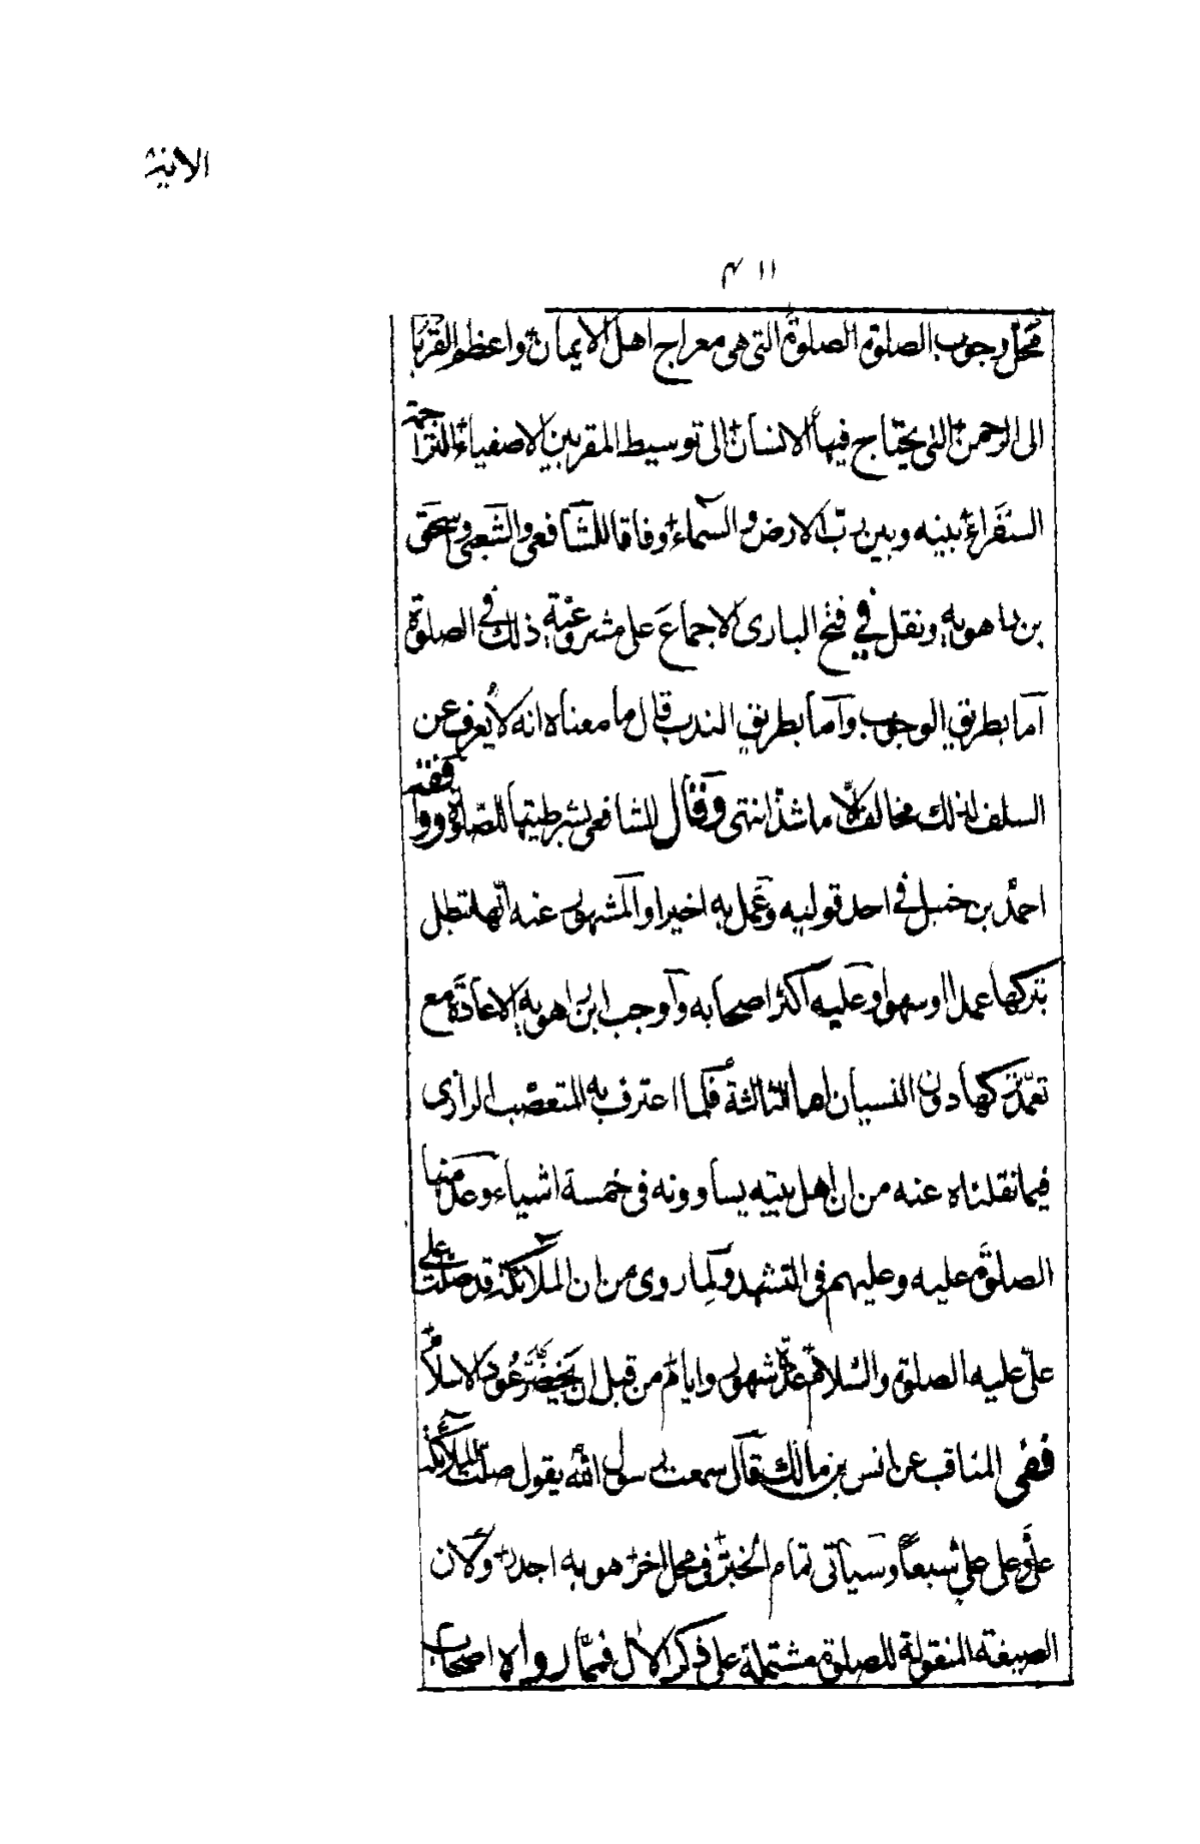 الاثنية
١١ ٣
فحل وجوب الصلوة الصلوة التى هى معراج اهل الايمان واعظم القربا
الى الرحمن التى يحتاج فيها الانسان الى توسيط المقربين الاصفياء التراجمة
السفراء بينه وبين رب الارض والسماء وفاقا للشافعى والشعبى واسحق
بن راهويه ونقل في فتح البارى الاجماع على مشروعية ذلك فى الصلوة
اما بطريق الوجوب واما بطريق الندب قال ما معناه انه لا يعرف عن
السلف لذلك مخالف الا ما شذ انتهى وقال للشافعى بشرطيتها للصلوة ووافقه
احمد بن حنبل فى احد قوليه وعمل به اخيرا والمشهور عنه انها تبطل
بتركها عمدا او سهوا وعليه اكثر اصحابه واوجب ابن راهويه الاعادة مع
تعمد تركها دون النسيان لها الثالثة فلما اعترف به المتعصب الرازى
فيما نقلناه عنه من ان اهل بيته يساوونه فى خمسة اشياء وعد منها
الصلوة عليه وعليهم فى التشهد ولما روى من ان الملائكة قد صلت على
على عليه الصلوة والسلام عدة شهور وايام من قبل ان يخضر عود الاسلام
ففى المناقب عن انس بن مالك قال سمعت رسول الله يقول صلت الملائكة
على وعلى على سبعا وسياتى تمام الخبر فى محل اخر هو به اجدر وكان
الصيغة المنقولة للصلوة مشتملة على ذكر الال فمما رواه اصحاب